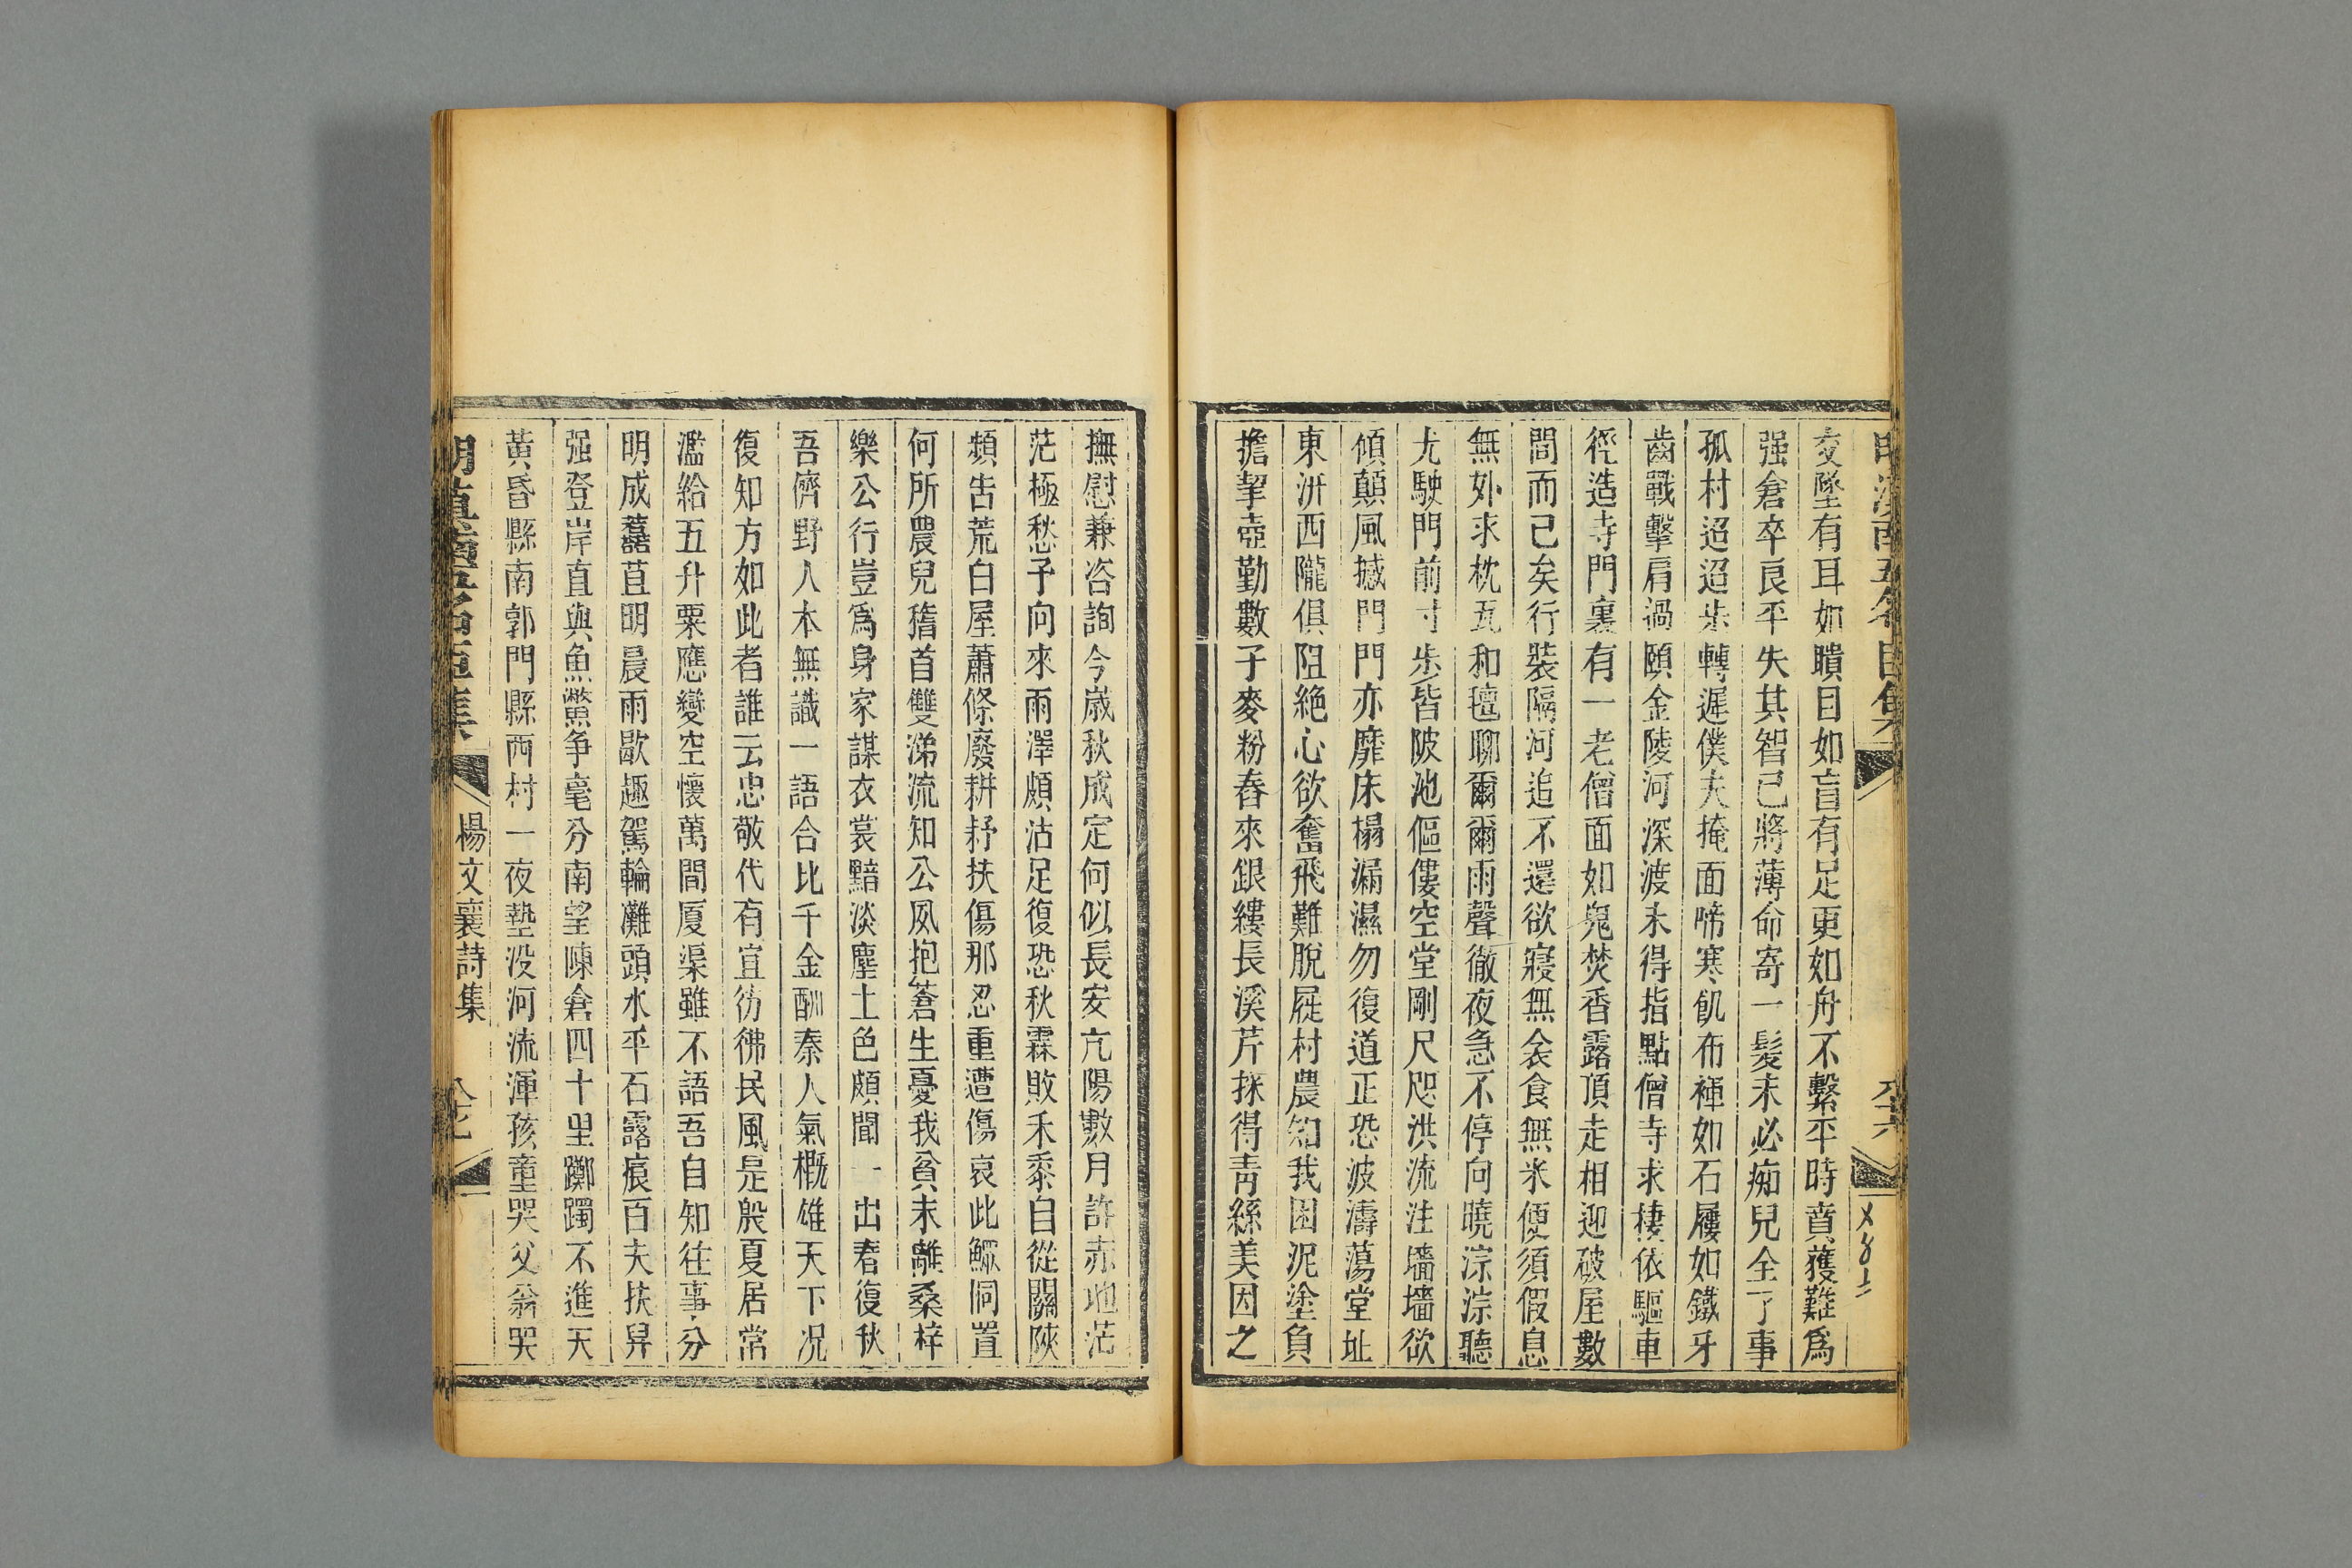 交墜有耳如聵目如盲有足更如舟不繫平時賁獲難爲
强倉卒良平失其智已將薄命寄一髮未必痴兒全了事
孤村迢迢步轉遲僕夫掩面啼寒飢布褌如石屨如鐵牙
齒戰擊肩過頤金陵河深渡未得指點僧寺求捿依驅車
徑造寺門裏有一老僧面如鬼焚香露頂走相迎破屋數
間而已矣行裝隔河追不還欲寢無衾食無米便須假息
無外求枕瓦和氊聊爾爾雨聲徹夜急不停向曉淙淙聽
尤駛門前寸步皆陂池傴僂空堂剛尺咫洪流注墻墻欲
傾顛風撼門門亦靡床榻漏濕勿復道正恐波濤蕩堂址
東泚西隴俱阻絶心欲奮飛難脫屣村農知我困泥塗負
擔挈壺勤數子麥粉舂來銀縷長溪芹採得靑絲美因之
撫慰兼咨詢今歲秋成定何似長安亢陽數月許赤地茫
茫極愁予向來雨澤頗沾足復恐秋霖敗禾黍自從關陝
頻告荒白屋蕭條廢耕耔扶傷那忍重遭傷哀此鰥恫置
何所農兒稽首雙涕流知公夙抱蒼生憂我貧未離桑梓
樂公行豈爲身家謀衣裳黯淡塵土色頗聞一出春復秋
吾儕野人本無識一語合比千金酬秦人氣概雄天下况
復知方如此者誰云忠敬代有宜彷彿民風是殷夏居常
濫給五升粟應變空懷萬間厦渠雖不語吾自知往事分
明成囍苴明晨雨歇趣駕輪灘頭水平石露痕百夫扶舁
强登岸直與魚鱉争毫分南望陳倉四十里躑躅不進天
黃昏縣南郭門縣西村一夜墊没河流渾孩童哭父翁哭
楊文襄詩集